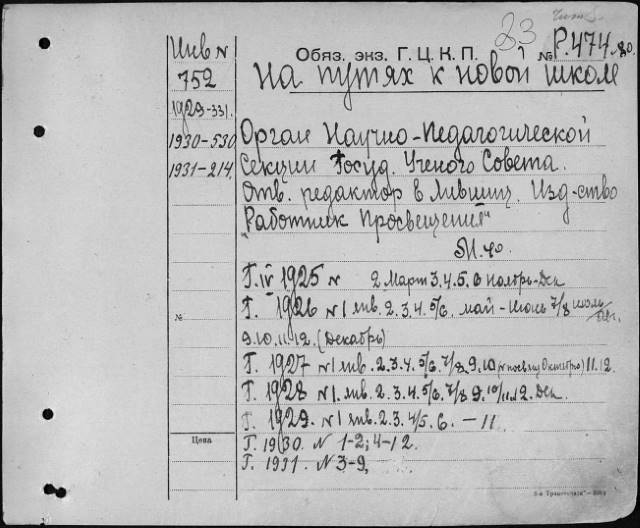 Читз.
23
Инв N
Обяз. экз. Г. Ц. К. П.
№ Р.474.
752
на путях к новой школе
1929-331.
1930-530
Орган Научно-Педагогической
1931-214.
Секции Госуд. Ученого Совета.
Отв. редактор В Лившиц. Изд-ство
"Работник Просвещения"
М. 40.
Г. IV 1925 N 2 Март 3.4.5.6 Ноябрь-Дек
Г. 1926 N 1 янв. 2.3.4.5/6. май-Июнь 7/8 июль/авг.
№
9.10.11.12. (Декабрь)
Г. 1927 N 1 янв. 2.3.4.5/6 7/8 9.10 (посвящ Октябрю) 11.12.
Г. 1928 N 1. янв. 2.3.4.5/6. 7/8 9.10/11.12. Дек
Г. 1929. N 1 янв. 2.3.4/5.6. – 11
Цена
Г. 1930. N 1-2; 4-12.
Г. 1931. N 3-9,